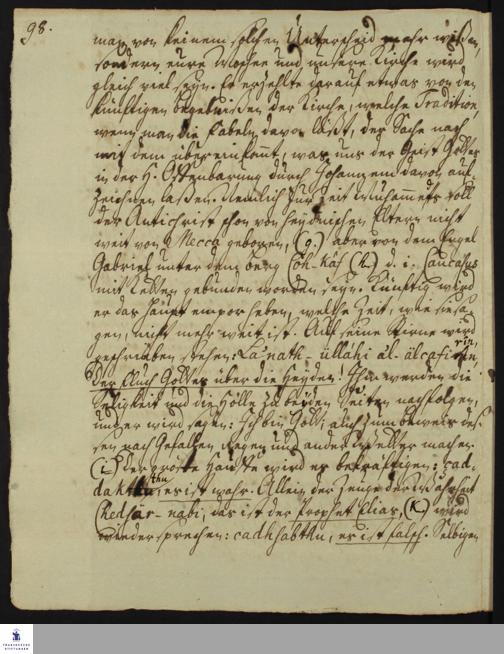 98.
man von keinem solchen Unterscheid mehr wißen,
sondern eure Moschee und unsere Kirche wird
gleich viel seyn. Er erzehlte darauf etwas von den
künftigen Begebnißen der Kirche, welche Tradition,
wenn man die Fabeln davon läßt, der Sache nach
mit dem übereinkommt, was uns der Geist Gottes
in der H. Offenbarung durch Johannem davon auf-
zeichnen laßen. Nemlich zur Zeit Muhammeds soll
der Antichrist schon von heydnischen Eltern nicht
weit von Mecca geboren, (g.) aber von dem Engel
Gabriel unter dem Berg Coh-Kaf (h.) d. i. Caucasus
mit Ketten gebunden worden seyn. Künftig wird
er das Haupt empor heben, welche Zeit, wie sie sa-
gen, nicht mehr weit ist. Auf seine Stirne wird
geschrieben stehen: La'nath-üllahi äl-älcafirin,
der Fluch Gottes über die Heyden! Ihm werden die
Seligkeit und die Hölle zu beyden Seiten nachfolgen,
und er wird sagen: Ich bin Gott; auch zum beweis des-
sen nach Gefallen Regen und ander Wetter machen.
(i.) der große Haufe wird es bekräftigen: cad-
dakthu, es ist wahr. Allein der Zeuge der Wahrheit
Chedsär-nabi, das ist der Prophet Elias, (k.) wird
wiedersprechen: cadhsabthu, es ist falsch. Selbigen
FRANCKESCHE
STIFTUNGEN